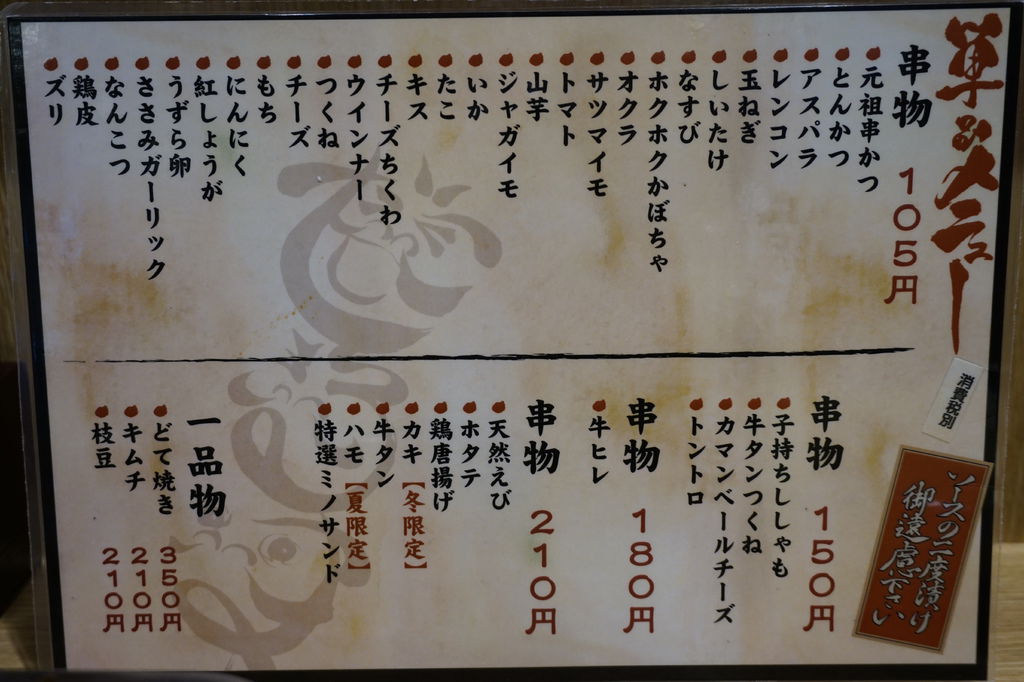 単品メニュー
串物 105円
元祖串かつ
とんかつ
アスパラ
レンコン
玉ねぎ
しいたけ
なすび
ホクホクかぼちゃ
オクラ
サツマイモ
トマト
山芋
ジャガイモ
いか
たこ
キス
チーズちくわ
ウインナー
つくね
チーズ
もち
にんにく
紅しょうが
うずら卵
ささみガーリック
なんこつ
鶏皮
ズリ
消費税別
ソースの二度漬け
御遠慮下さい
串物 150円
子持ちししゃも
牛タンつくね
カマンベールチーズ
トントロ
串物 180円
牛ヒレ
串物 210円
天然えび
ホタテ
鶏唐揚げ
カキ【冬限定】
牛タン
ハモ【夏限定】
特選ミノサンド
一品物
どて焼き 350円
キムチ 210円
枝豆 210円